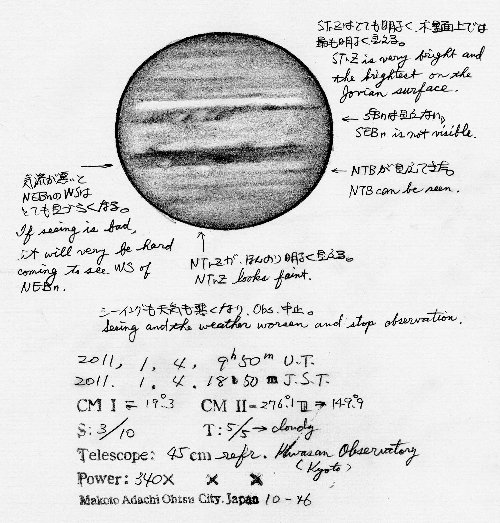 STrZはとても明るく、木星面上では
最も明るく見える。
STrZ is very bright and
the brightest on the
Jovian surface.
SEBnは見えない。
SEBn is not visible.
NTBが見えてきた。
NTB can be seen.
気流が悪いと
NEBnのWSは
とても見づらくなる。
If seeing is bad,
it will very be hard
coming to see WS of
NEBn.
NTrZが、ほんのり明るく見える。
NTrZ looks faint.
シーイングも天気も悪くなり、Obs. 中止。
Seeing and the weather worsen and stop observation.
2011, 1, 4, 9h 50m U.T.
2011. 1. 4. 18h 50m J.S.T.
CM I = 19.°3 CM II = 276.°1 III = 149.°9
S: 3/10 T: 5/5 → cloudy
Telescope: 45 cm refr. Kwasan Observatory
(Kyoto)
Power: 340× × ×
Makoto Adachi Ohtsu City. Japan 10-46